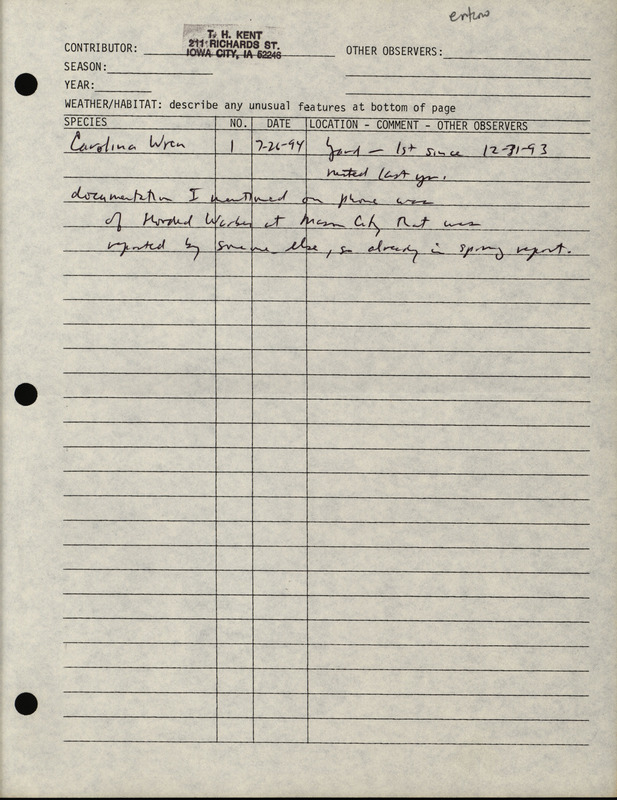 T. H. KENT
211 RICHARDS ST.
IOWA CITY, IA 52246
CONTRIBUTOR:
OTHER OBSERVERS:
SEASON:
YEAR:
WEATHER/HABITAT: describe any unusual features at bottom of page
SPECIES NO. DATE LOCATION - COMMENT - OTHER OBSERVERS
Carolina Wren 1 7-26-94 Yard - 1st since 12-31-93
nested last yr.
documentation I mentioned on phone was
of Hooded Warbler at Mason City that was
reported by someone else, so already in spring report.